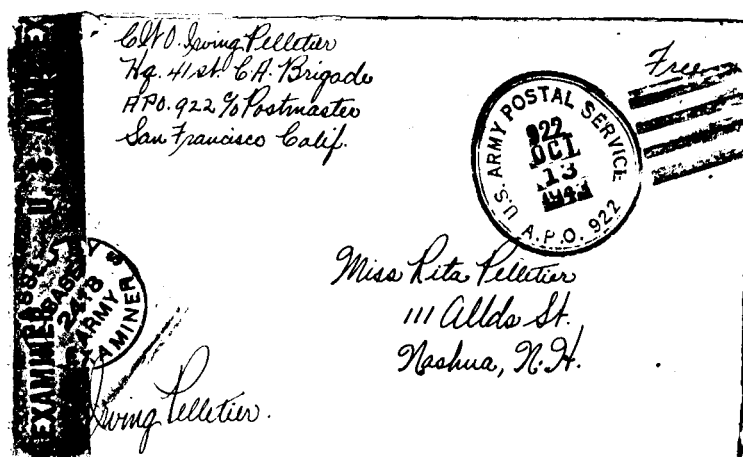 C.W.O. Irving Pelletier
Hq. 41st. C.A. Brigade
A.P.O. 922 c/o Postmaster
San Francisco Calif.
Free
U.S. ARMY POSTAL SERVICE
922
OCT
13
A.P.O. 922
Miss Rita Pelletier
111 Allds St.
Nashua, N.H.
BASE
2478
ARMY
EXAMINER
Irving Pelletier.